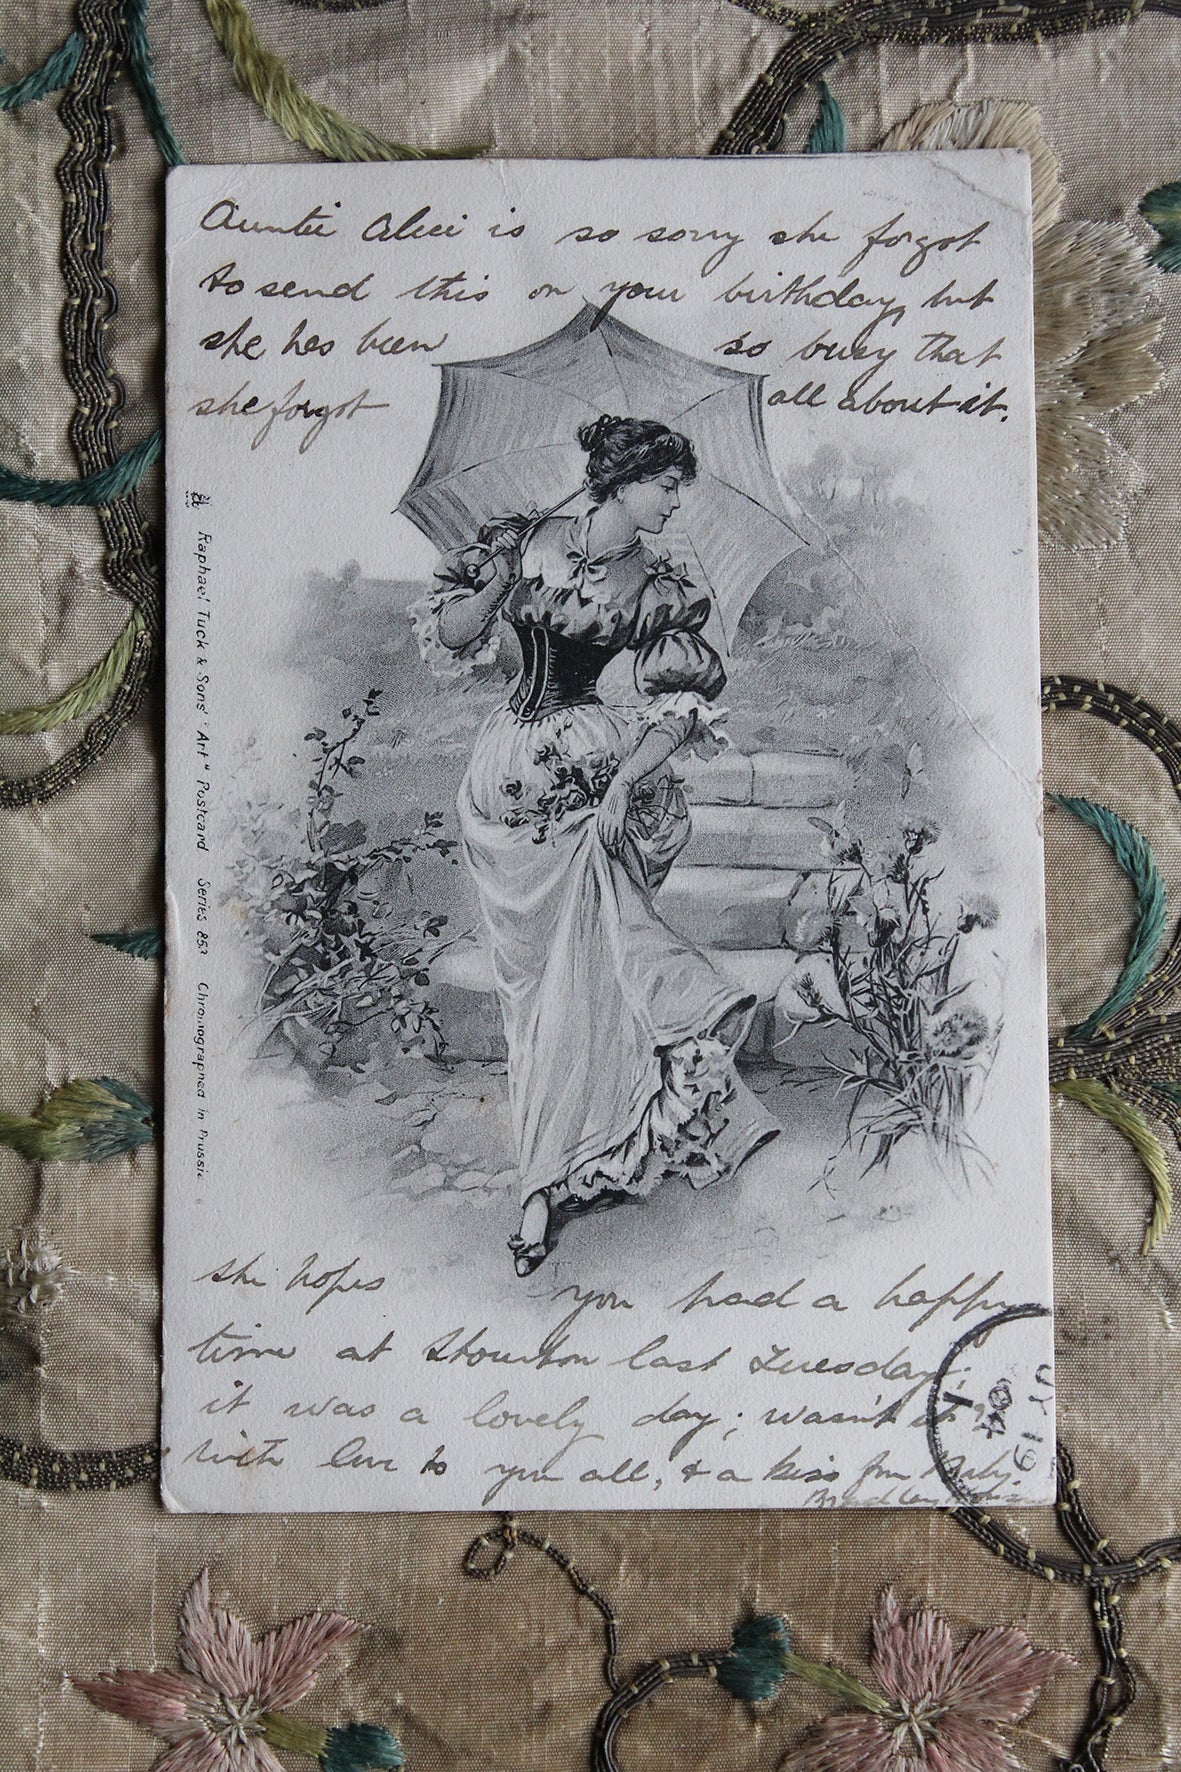 Auntie Alice is so sorry she forgot
to send this on your birthday, but
she has been so busy that
she forgot all about it.
Raphael Tuck & Sons' "Art" Postcard Series 853 Chromographed in Prussia
she hopes you had a happy
time at Stourton last Tuesday;
it was a lovely day; wasn't it?
with love to you all, & a kiss for Baby.
Bradley
04